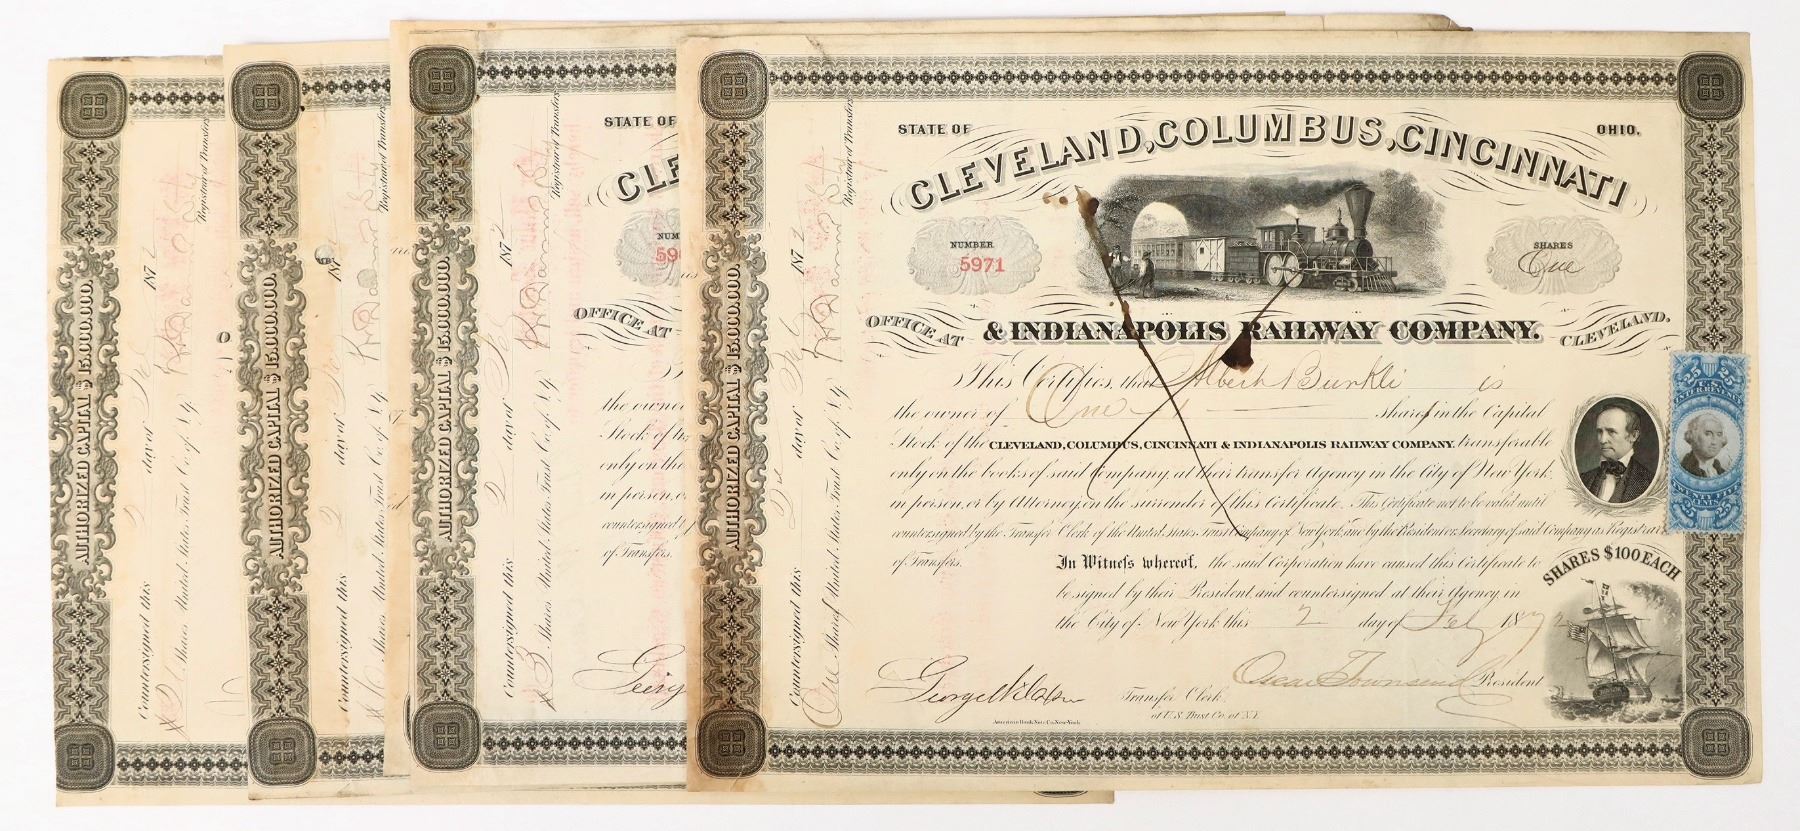 STATE OF OHIO.
CLEVELAND, COLUMBUS, CINCINNATI
NUMBER
5971
SHARES
One
OFFICE AT & INDIANAPOLIS RAILWAY COMPANY. CLEVELAND.
This Certifies, that Albert Bunkli is
the owner of One shares in the Capital
Stock of the CLEVELAND, COLUMBUS, CINCINNATI & INDIANAPOLIS RAILWAY COMPANY. transferable
only on the books of said Company, at their transfer Agency in the City of New York
in person, or by Attorney, on the surrender of this Certificate. This Certificate not to be valid until
countersigned by the Transfer Clerk of the United States Trust Company of New York, and by the President or Secretary of said Company as Registrar
of Transfers.
In Witness whereof, the said Corporation have caused this Certificate to
be signed by their President and countersigned at their Agency in
the City of New York this 2 day of Feby 1872
Transfer Clerk
at U.S. Trust Co. of N.Y.
Oscar Townsend President
American Bank Note Co. New York
SHARES $100 EACH
25 25
U.S.
INTER. REVENUE
TWENTY FIVE
CENTS
25 25
AUTHORIZED CAPITAL $15.000.000.
Countersigned this 2 day of Feb 1872
One Share United States Trust Co. of N.Y.
Registrar of Transfers
STATE OF
CLE
NUM
OFFICE AT
the owner
Stock of the
only on the
in person, o
countersigned
of Transfers.
AUTHORIZED CAPITAL $15.000.000.
Countersigned this 2 day of 1872
Shares United States Trust Co. of N.Y.
Registrar of Transfers
AUTHORIZED CAPITAL $15.000.000.
Countersigned this 2 day of 187
Shares United States Trust Co. of N.Y.
Registrar of Transfers
AUTHORIZED CAPITAL $15.000.000.
Countersigned this 2 day of 1872
Shares United States Trust Co. of N.Y.
Registrar of Transfers